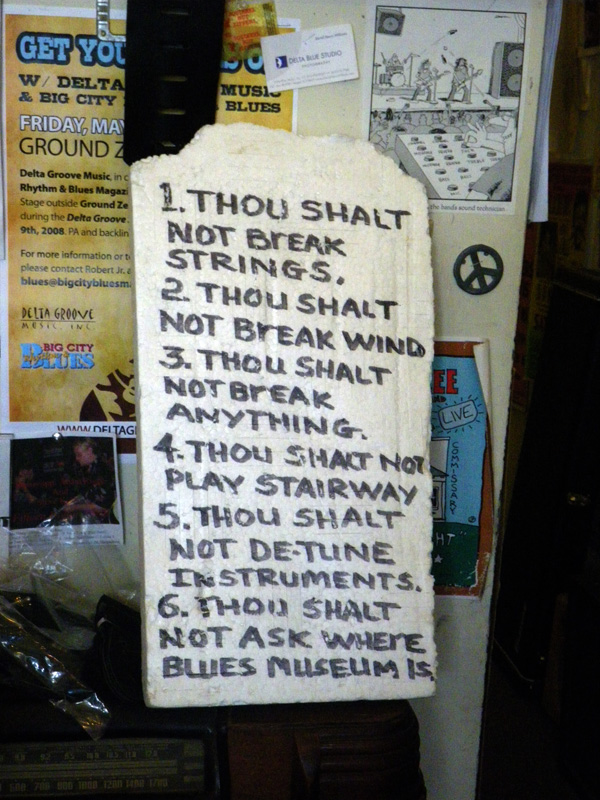 GET YOU
W/ DELTA MUSIC
& BIG CITY BLUES
FRIDAY, MAY
GROUND Z
Delta Groove Music, in
Rhythm & Blues Magaz
Stage outside Ground Ze
during the Delta Groove
9th, 2008. PA and backlin
For more information or t
please contact Robert Jr. a
blues@bigcitybluesm
DELTA GROOVE
MUSIC, INC.
BIG CITY
BLUES
WWW.DELTAG
DELTA BLUE STUDIO
the bands sound technician
1. THOU SHALT
NOT BREAK
STRINGS.
2. THOU SHALT
NOT BREAK WIND
3. THOU SHALT
NOT BREAK
ANYTHING.
4. THOU SHALT NOT
PLAY STAIRWAY
5. THOU SHALT
NOT DE-TUNE
INSTRUMENTS.
6. THOU SHALT
NOT ASK WHERE
BLUES MUSEUM IS.
EE
LIVE
COMMISSARY
HT